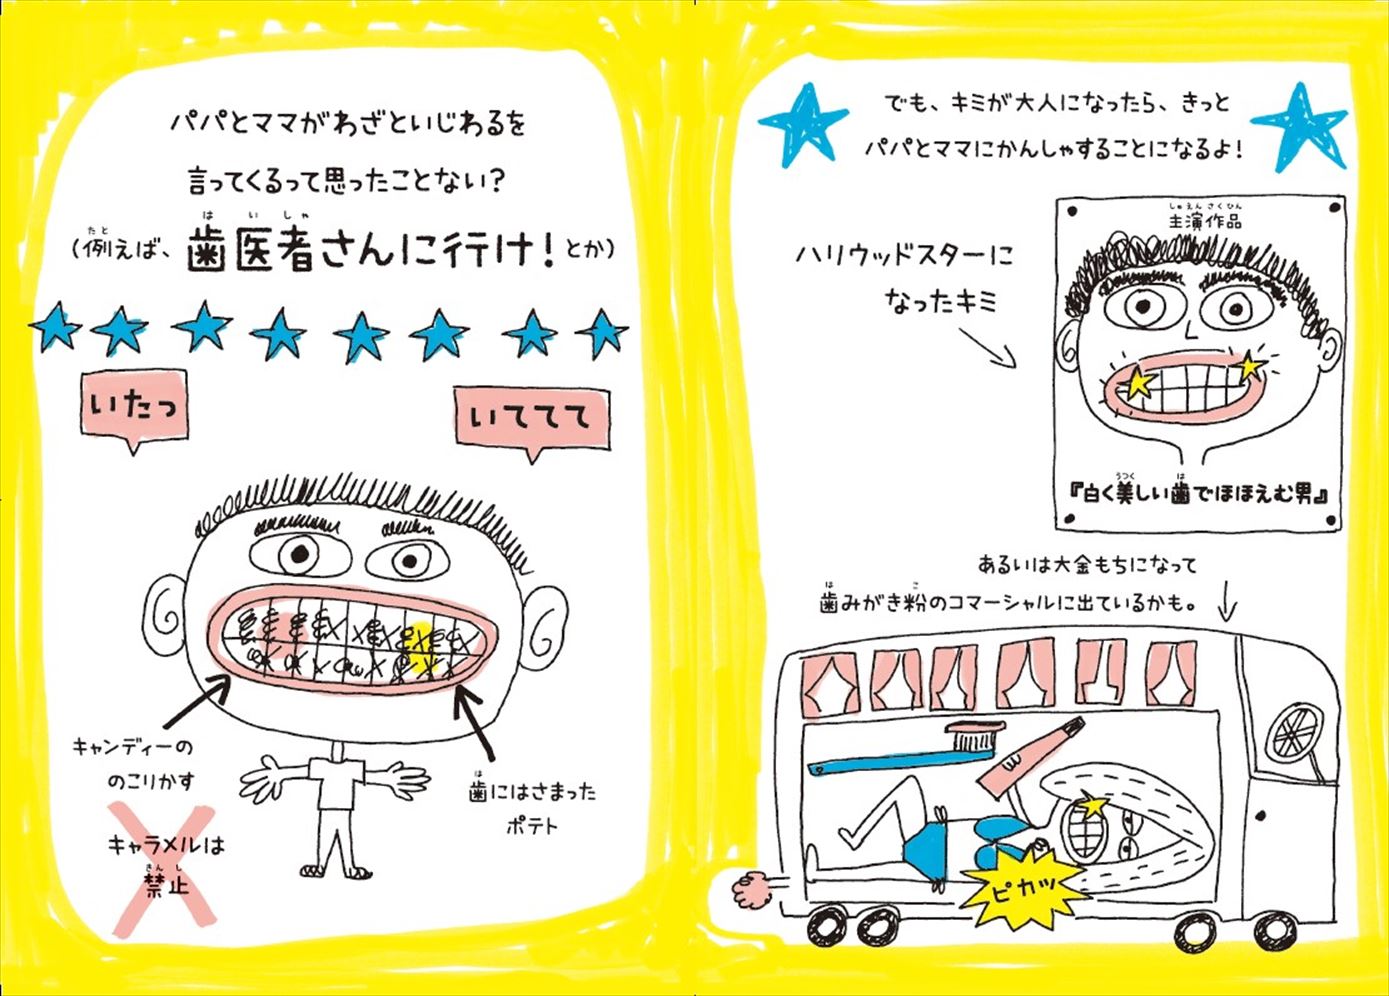 パパとママがわざといじわるを
言ってくるって思ったことない?
(例えば、歯医者さんに行け!とか)
たと
はいしゃ
いたっ
いててて
キャンディーの
のこりかす
キャラメルは
きんし
禁止
は
歯にはさまった
ポテト
でも、キミが大人になったら、きっと
パパとママにかんしゃすることになるよ!
ハリウッドスターに
なったキミ
しゅえんさくひん
主演作品
うつく は
『白く美しい歯でほほえむ男』
あるいは大金もちになって
は こ
歯みがき粉のコマーシャルに出ているかも。
ピカッ